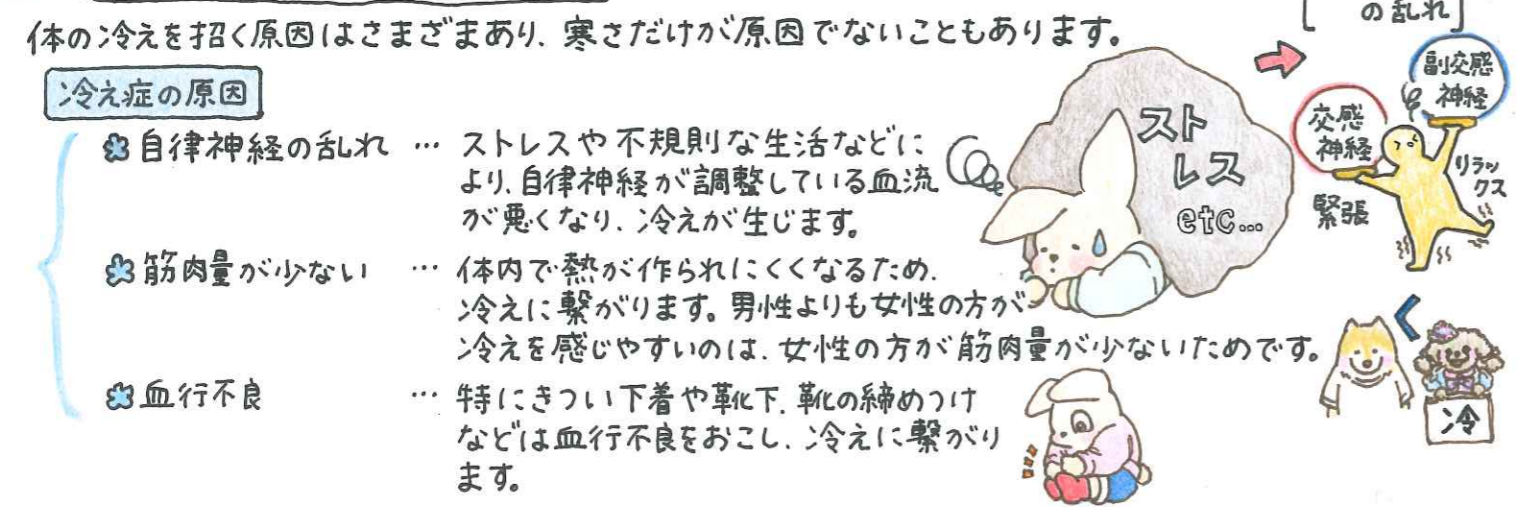 の乱れ
体の冷えを招く原因はさまざまあり、寒さだけが原因でないこともあります。
冷え症の原因
自律神経の乱れ … ストレスや不規則な生活などに
より、自律神経が調整している血流
が悪くなり、冷えが生じます。
筋肉量が少ない … 体内で熱が作られにくくなるため、
冷えに繋がります。男性よりも女性の方が
冷えを感じやすいのは、女性の方が筋肉量が少ないためです。
血行不良 … 特にきつい下着や靴下、靴の締めつけ
などは血行不良をおこし、冷えに繋がり
ます。
スト
レス
etc...
副交感
神経
交感
神経
リラッ
クス
緊張
冷